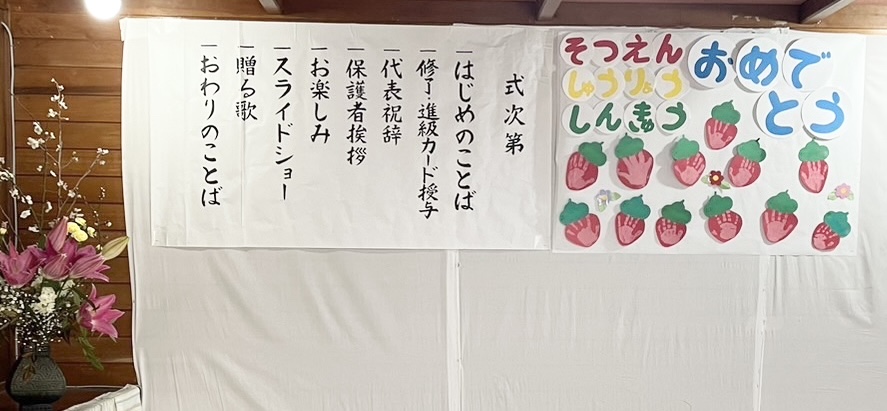 式次第
一はじめのことば
一修了・進級カード授与
一代表祝辞
一保護者挨拶
一お楽しみ
一スライドショー
一贈る歌
一おわりのことば
そつえん
しゅうりょう
しんきゅう
おめで
とう